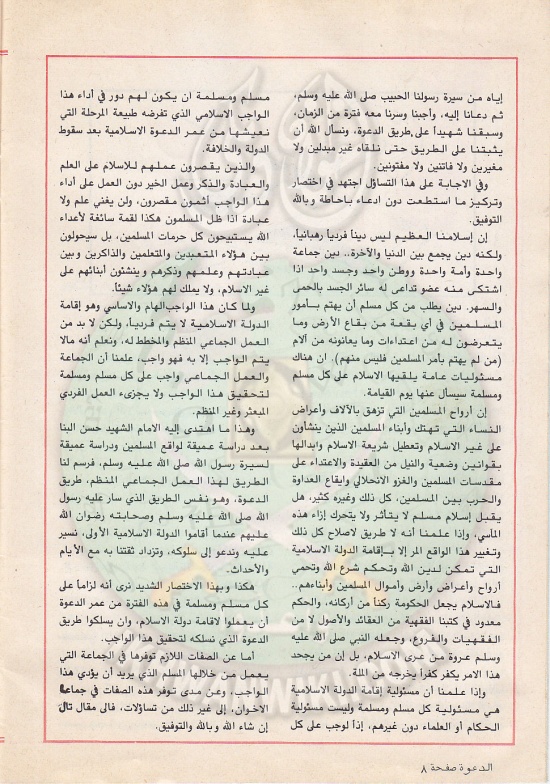 إياه من سيرة رسولنا الحبيب صلى الله عليه وسلم،
ثم دعانا إليه، وأجبنا وسرنا معه فترة من الزمان،
وسبقنا شهيداً على طريق الدعوة، ونسأل الله أن
يثبتنا على الطريق حتى نلقاه غير مبدلين ولا
مغيرين ولا فاتنين ولا مفتونين.
وفي الاجابة على هذا التساؤل اجتهد في اختصار
وتركيز ما استطعت دون ادعاء باحاطة وبالله
التوفيق.
إن إسلامنا العظيم ليس ديناً فردياً رهبانياً،
ولكنه دين يجمع بين الدنيا والآخرة.. دين جماعة
واحدة وأمة واحدة ووطن واحد وجسد واحد اذا
اشتكى منه عضو تداعى له سائر الجسد بالحمى
والسهر. دين يطلب من كل مسلم أن يهتم بأمور
المسلمين في أي بقعة من بقاع الأرض وما
يتعرضون له من اعتداءات وما يعانونه من آلام
(من لم يهتم بأمر المسلمين فليس منهم). ان هناك
مسئوليات عامة يلقيها الاسلام على كل مسلم
ومسلمة سيسأل عنها يوم القيامة.
إن أرواح المسلمين التي تزهق بالآلاف وأعراض
النساء التي تهتك وأبناء المسلمين الذين ينشأون
على غير الاسلام وتعطيل شريعة الاسلام وابدالها
بقوانين وضعية والنيل من العقيدة والاعتداء على
مقدسات المسلمين والغزو الانحلالي وايقاع العداوة
والحرب بين المسلمين، كل ذلك وغيره كثير، هل
يقبل إسلام مسلم لا يتأثر ولا يتحرك إزاء هذه
المآسي. وإذا علمنا أنه لا طريق لاصلاح كل ذلك
وتغيير هذا الواقع المر إلا بإقامة الدولة الاسلامية
التي تمكن لدين الله وتحكم شرع الله وتحمي
أرواح وأعراض وأرض وأموال المسلمين وأبناءهم..
فالاسلام يجعل الحكومة ركناً من أركانه، والحكم
معدود في كتبنا الفقهية من العقائد والأصول لا من
الفقهيات والفروع، وجعله النبي صلى الله عليه
وسلم عروة من عرى الاسلام، بل إن من يجحد
هذا الامر يكفر كفراً يخرجه من الملة.
وإذا علمنا أن مسئولية إقامة الدولة الاسلامية
هي مسئولية كل مسلم ومسلمة وليست مسئولية
الحكام أو العلماء دون غيرهم، إذاً لوجب على كل
مسلم ومسلمة ان يكون لهم دور في أداء هذا
الواجب الاسلامي الذي تفرضه طبيعة المرحلة التي
نعيشها من عمر الدعوة الاسلامية بعد سقوط
الدولة والخلافة.
والذين يقصرون عملهم للاسلام على العلم
والعبادة والذكر وعمل الخير دون العمل على أداء
هذا الواجب آثمون مقصرون، ولن يغني علم ولا
عبادة اذا ظل المسلمون هكذا لقمة سائغة لأعداء
الله يستبيحون كل حرمات المسلمين، بل سيحولون
بين هؤلاء المتعبدين والمتعلمين والذاكرين وبين
عبادتهم وعلمهم وذكرهم وينشئون أبنائهم على
غير الاسلام، ولا يملك لهم هؤلاء شيئاً.
ولما كان هذا الواجب الهام والاساسي وهو إقامة
الدولة الاسلامية لا يتم فردياً، ولكن لا بد من
العمل الجماعي المنظم والمخطط له، ونعلم أنه مالا
يتم الواجب إلا به فهو واجب، علمنا أن الجماعة
والعمل الجماعي واجب على كل مسلم ومسلمة
لتحقيق هذا الواجب ولا يجزىء العمل الفردي
المبعثر وغير المنظم.
وهذا ما اهتدى إليه الامام الشهيد حسن البنا
بعد دراسة عميقة لواقع المسلمين ودراسة عميقة
لسيرة رسول الله صلى الله عليه وسلم، فرسم لنا
الطريق لهذا العمل الجماعي المنظم، طريق
الدعوة، وهو نفس الطريق الذي سار عليه رسول
الله صلى الله عليه وسلم وصحابته رضوان الله
عليهم عندما أقاموا الدولة الاسلامية الأولى، نسير
عليه وندعو إلى سلوكه، وتزداد ثقتنا به مع الأيام
والأحداث.
هكذا وبهذا الاختصار الشديد نرى أنه لزاماً على
كل مسلم ومسلمة في هذه الفترة من عمر الدعوة
أن يعملوا لاقامة دولة الاسلام، وان يسلكوا طريق
الدعوة الذي نسلكه لتحقيق هذا الواجب.
أما عن الصفات اللازم توفرها في الجماعة التي
يعمل من خلالها المسلم الذي يريد أن يؤدي هذا
الواجب، وعن مدى توفر هذه الصفات في جماعة
الاخوان، إلى غير ذلك من تساؤلات، فالى مقال تال
إن شاء الله وبالله والتوفيق.
الدعوة صفحة ٨